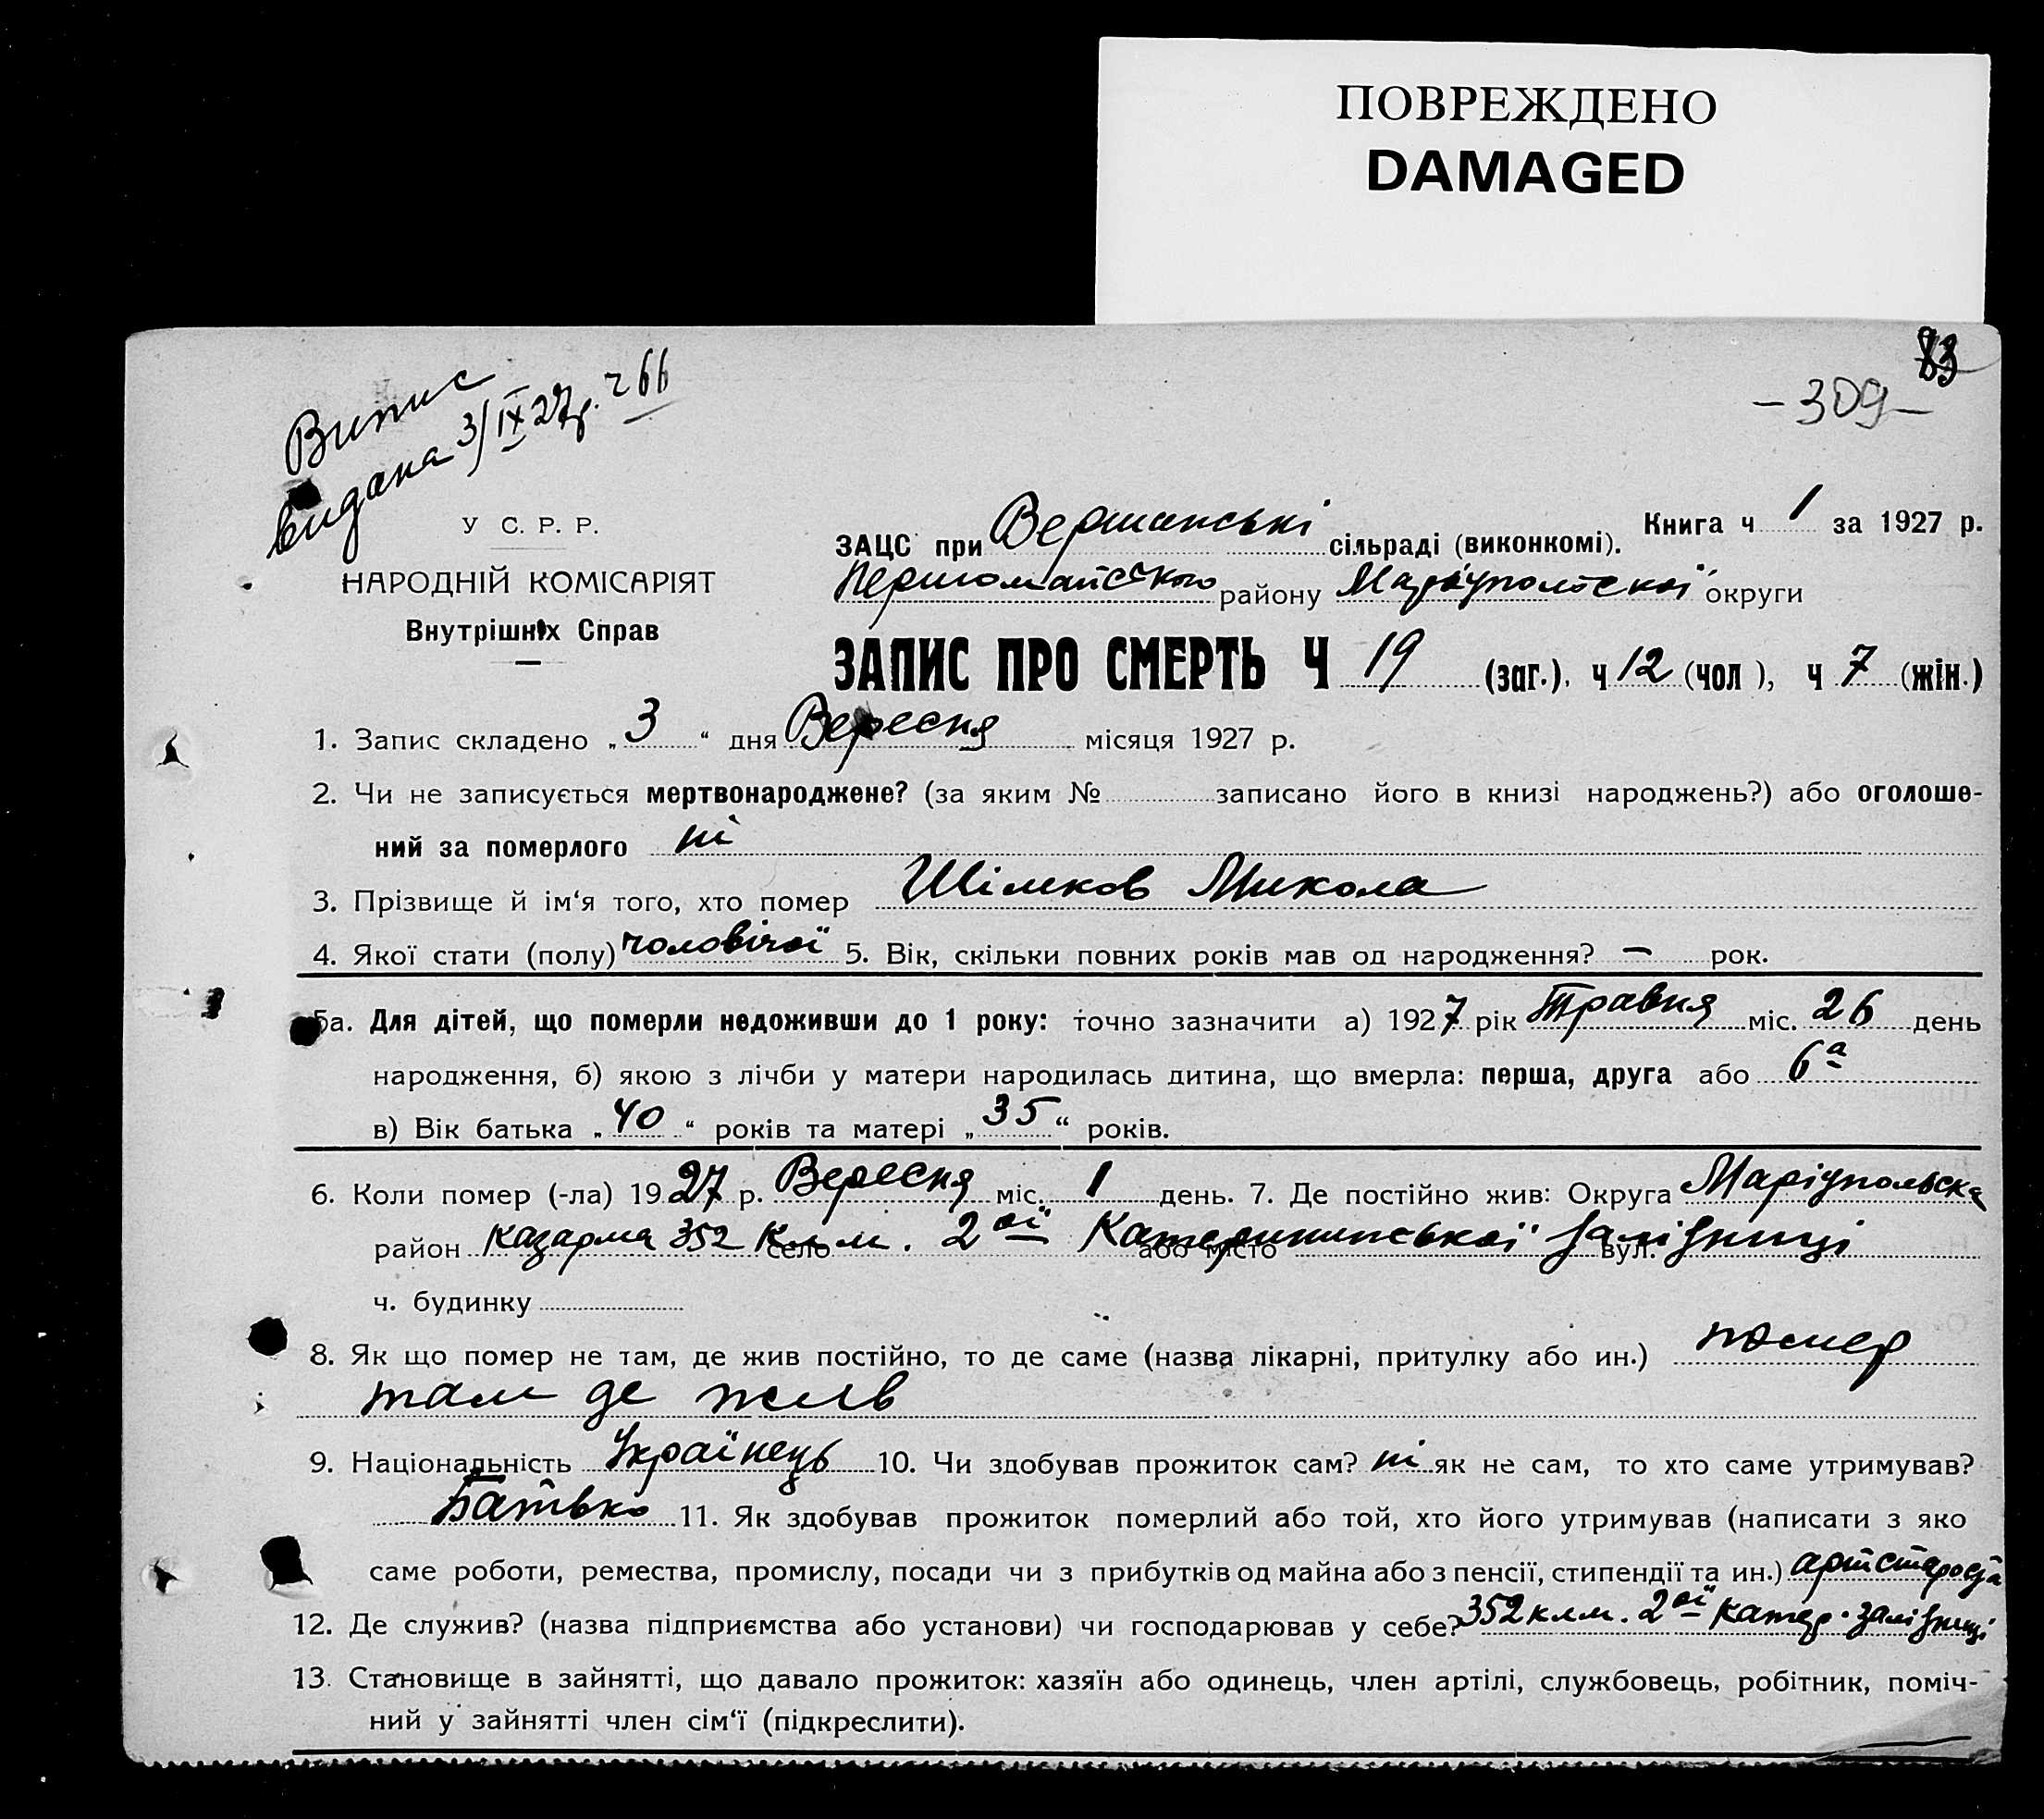 ПОВРЕЖДЕНО
DAMAGED
83
— 309 —
Випис
видана 3/IX 27р. ч 66
У С. Р. Р.
НАРОДНІЙ КОМІСАРІЯТ
Внутрішніх Справ
Книга ч 1 за 1927 р.
ЗАЦС при Вершинські сільраді (виконкомі).
Першомайського району Маріупольської округи
ЗАПИС ПРО СМЕРТЬ Ч 19 (заг.). ч 12 (чол ), ч 7 (жін.)
1. Запис складено „ 3 “ дня Вересня місяця 1927 р.
2. Чи не записується мертвонароджене? (за яким № записано його в книзі народжень?) або оголоше-
ний за померлого ні
3. Прізвище й ім‘я того, хто помер Шілков Микола
4. Якої стати (полу) чоловічої 5. Вік, скільки повних років мав од народження? — рок.
5а. Для дітей, що померли недоживши до 1 року: точно зазначити а) 1927 рік Травня міс. 26 день
народження, б) якою з лічби у матери народилась дитина, що вмерла: перша, друга або 6а
в) Вік батька „ 40 “ років та матері „ 35 “ років.
6. Коли помер (-ла) 1927 р. Вересня міс. 1 день. 7. Де постійно жив: Округа Маріупольска
район казарма 352 клм. село 2ої Катерининської або місто залізниці вул.
ч. будинку
8. Як що помер не там, де жив постійно, то де саме (назва лікарні, притулку або ин.) помер
там де жив
9. Національність Українець 10. Чи здобував прожиток сам? ні як не сам, то хто саме утримував?
Батько 11. Як здобував прожиток померлий або той, хто його утримував (написати з яко
саме роботи, ремества, промислу, посади чи з прибутків од майна або з пенсії, стипендії та ин.) артстароста
12. Де служив? (назва підприємства або установи) чи господарював у себе? 352 клм. 2ої катер. залізниці
13. Становище в зайнятті, що давало прожиток: хазяїн або одинець, член артілі, службовець, робітник, поміч-
ний у зайнятті член сім‘ї (підкреслити).